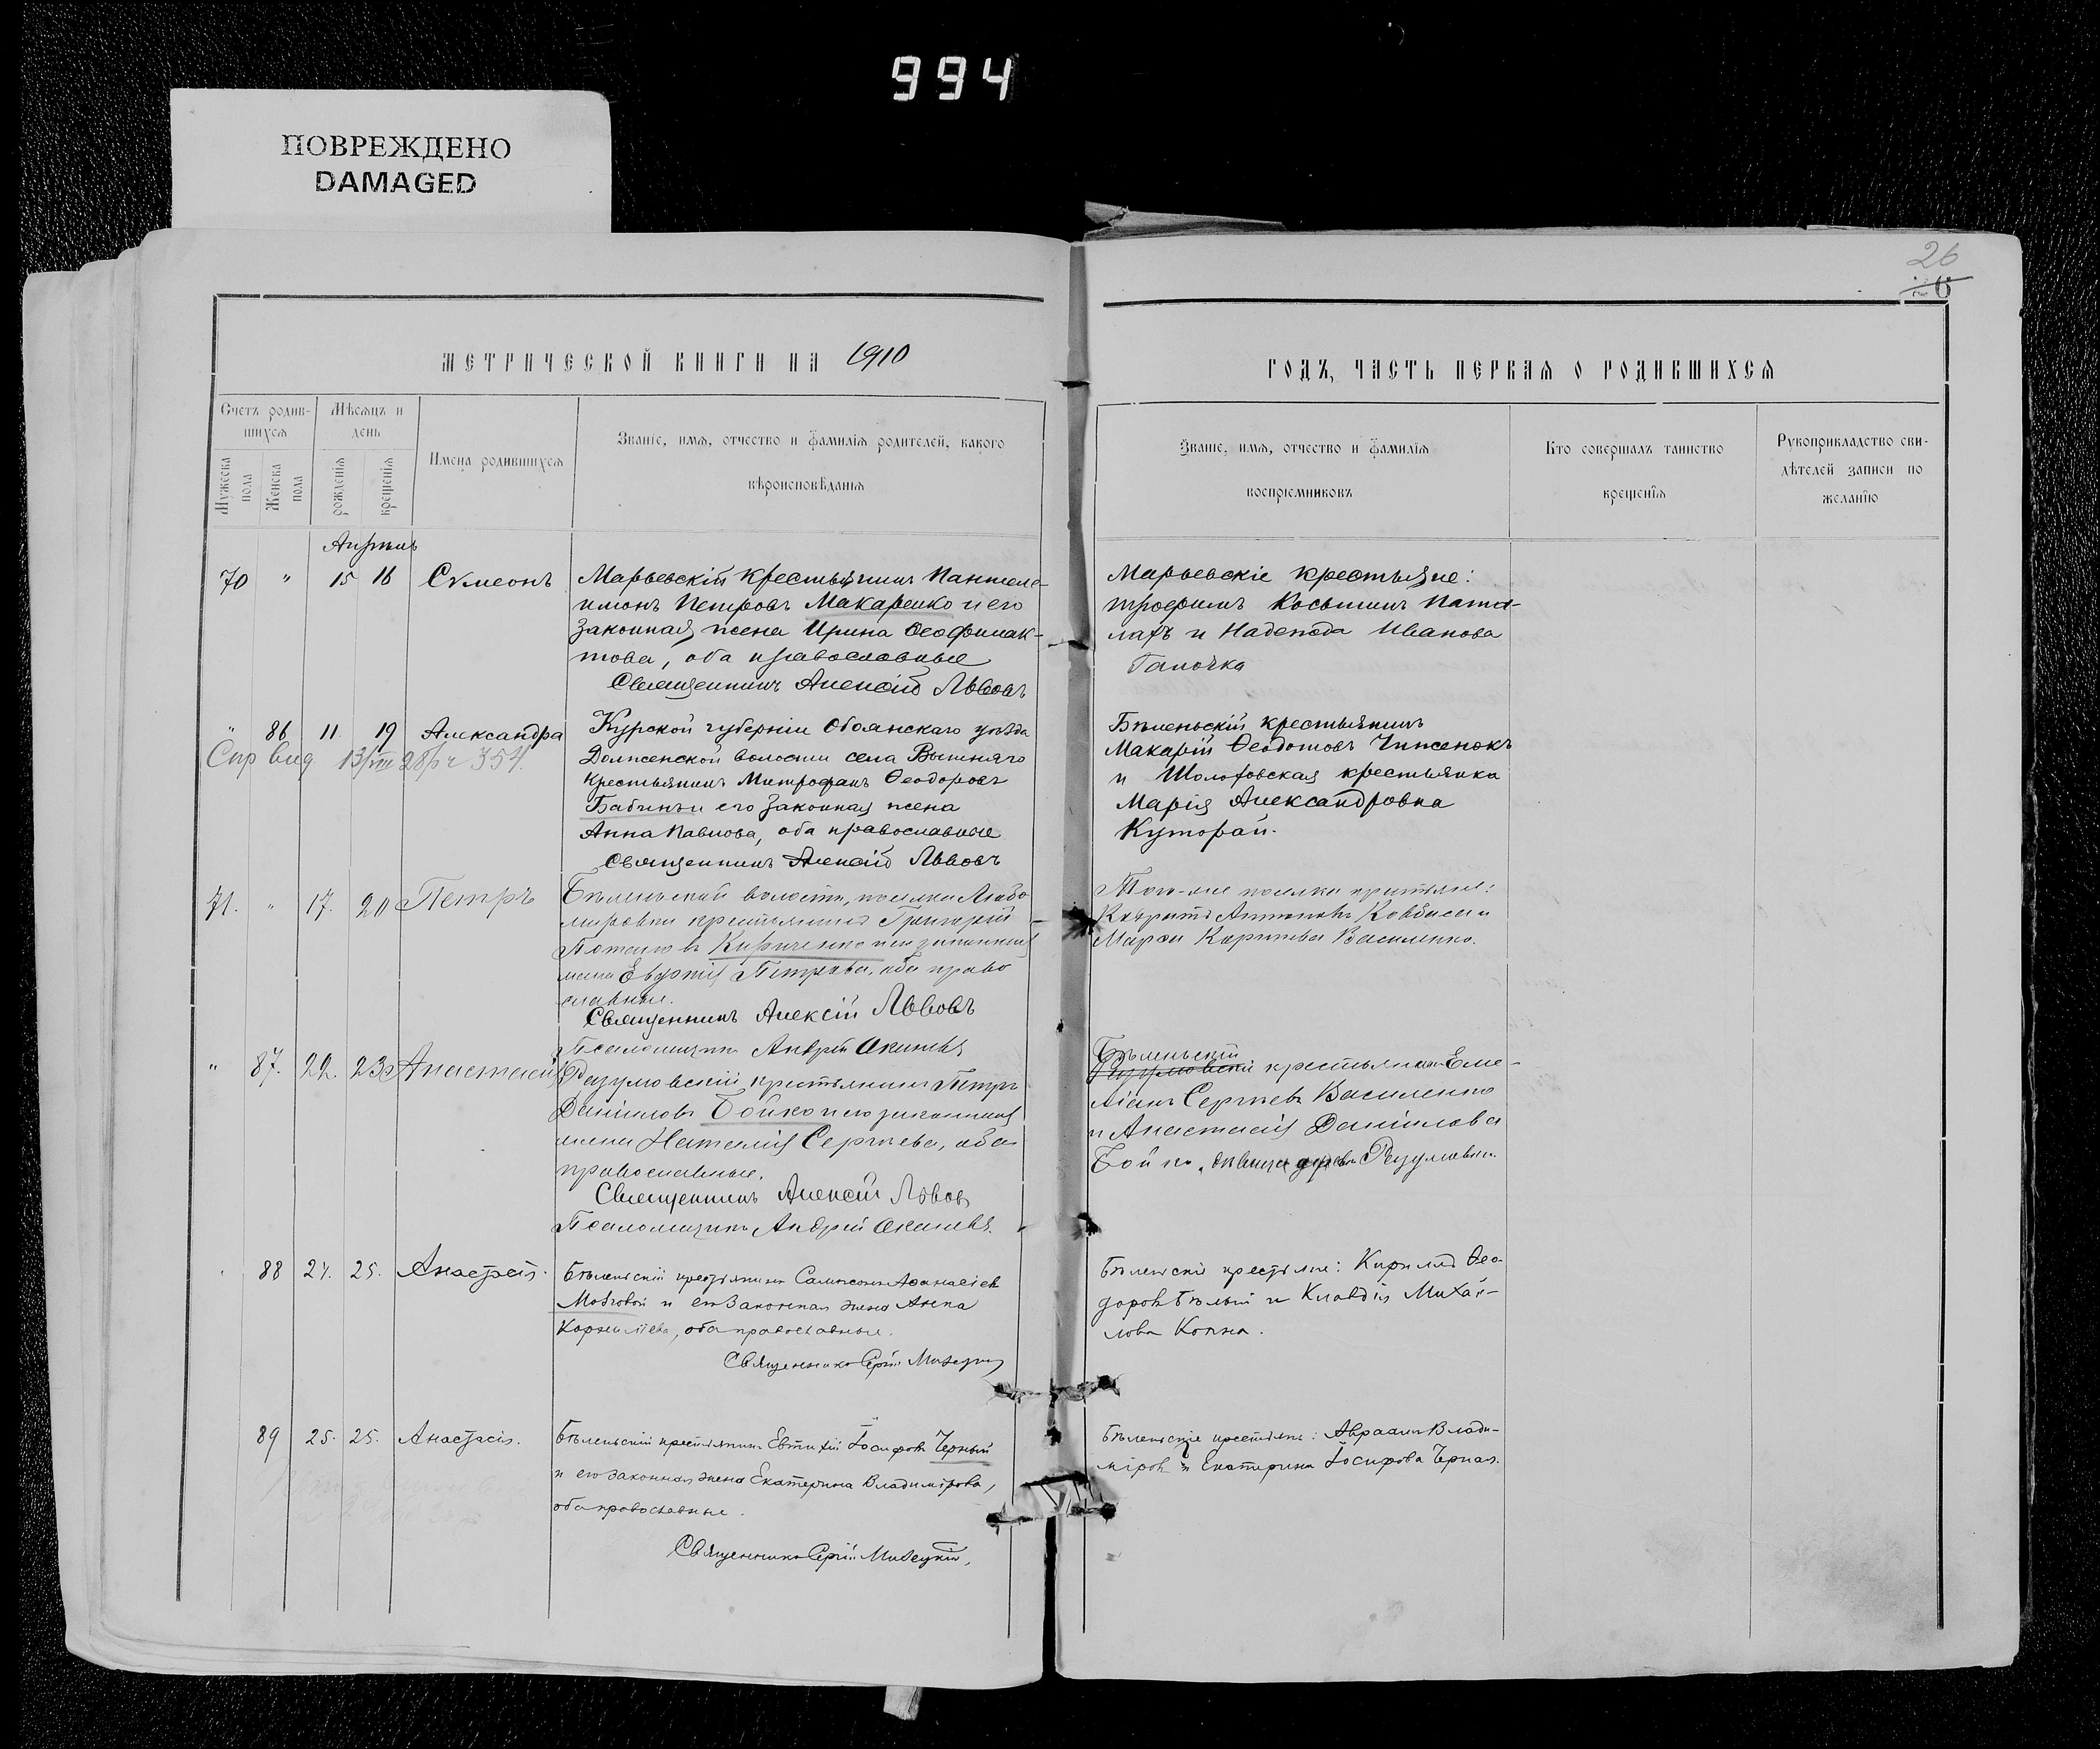 994
ПОВРЕЖДЕНО
DAMAGED
26
МЕТРИЧЕСКОЙ КНИГИ НА 1910
ГОДЪ, ЧАСТЬ ПЕРВАЯ О РОДИВШИХСЯ
Счетъ родив-
шихся
Мѣсяцъ и
день
Мужеска
пола
Женска
пола
рожденія
крещенія
Имена родившихся
Званіе, имя, отчество и фамилія родителей, какого
вѣроисповѣданія
Званіе, имя, отчество и фамилія
воспріемниковъ
Кто совершалъ таинство
крещенія
Рукоприкладство сви-
дѣтелей записи по
желанію
Апрѣль
70 " 15 18 Сѵмеонъ
Марьевскій крестьянинъ Пантеле-
имонъ Петровъ Макаренко и его
законная жена Ирина Ѳеофилак-
това, оба православные
Священникъ Алексій Львовъ
Марьевскіе крестьяне:
Трофимъ Косьминъ
и Надежда Иванова
Галочка
" 86 11. 19 Александра
Спр вид 13/VIII 28/г 354.
Курской губерніи Обоянскаго уѣзда
Долженской волости села Вышняго
крестьянинъ Митрофанъ Ѳеодоровъ
Бабинъ и его законная жена
Анна Павлова, оба православные
Священникъ Алексій Львовъ
Бѣленьскій крестьянинъ
Макарій Ѳеодотовъ Чиженокъ
и Шолоховская крестьянка
Марія Александровна
71. " 17. 20 Петръ
Бѣленьской волости, поселка Любо
мировки крестьянинъ Григорій
Потаповъ Кириченко и его законная
жена Евдокія Петрова, оба право
славные.
Священникъ Алексій Львовъ
Псаломщикъ Андрей Акимовъ
Того-же поселка крестьяне:
Антоновъ Ковбаса и
Марѳа Карпова Василенко.
" 87. 22. 23 Анастасія
Разумовскій крестьянинъ Петръ
Даніиловъ Бойко и его законная
жена Наталія Сергѣева, оба
православные.
Священникъ Алексій Львовъ
Псаломщикъ Андрей Акимовъ.
Бѣленьскій
Разумовскій крестьянинъ Еме-
ліанъ Сергѣевъ Василенко
и Анастасія Даніилова
Бойко, дѣвица Разумовки.
88 24. 25. Анастасія.
Бѣленьскій крестьянинъ Сампсонъ Аѳанасіев
Мозговой и его законная жена Анна
Корниліева, оба православные.
Священникъ Сергій
Бѣленьскіе крестьяне: Кириллъ Ѳео-
доровъ Бѣлый и Клавдія Михай-
лова Копна.
89 25. 25. Анастасія.
Бѣленьскій крестьянинъ Евтихій Іосифовъ Черный
и его законная жена Екатерина Владимірова,
оба православные.
Священникъ Сергій
Бѣленьскіе крестьяне: Авраамъ Влади-
міровъ и Екатерина Іосифова Черная.